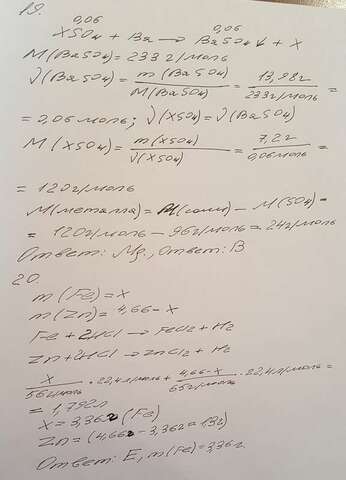 19.
0,06 0,06
XSO4 + Ba → BaSO4↓ + X
M(BaSO4) = 233 г/моль
ν(BaSO4) = m(BaSO4)/M(BaSO4) = 13,98г/233г/моль =
= 0,06 моль; ν(XSO4) = ν(BaSO4)
M(XSO4) = m(XSO4)/ν(XSO4) = 7,2г/0,06моль =
= 120г/моль
M(металла) = M(соли) − M(SO4) =
= 120г/моль − 96г/моль = 24г/моль
Ответ: Mg., Ответ: B
20.
m(Fe) = x
m(Zn) = 4,66 - x
Fe + 2HCl → FeCl2 + H2
Zn + 2HCl → ZnCl2 + H2
x/56г/моль · 22,4л/моль + 4,66-x/65г/моль · 22,4л/моль =
= 1,792л
x = 3,36г (Fe)
Zn = (4,66г - 3,36г = 1,3г)
Ответ: E, m(Fe) = 3,36г.